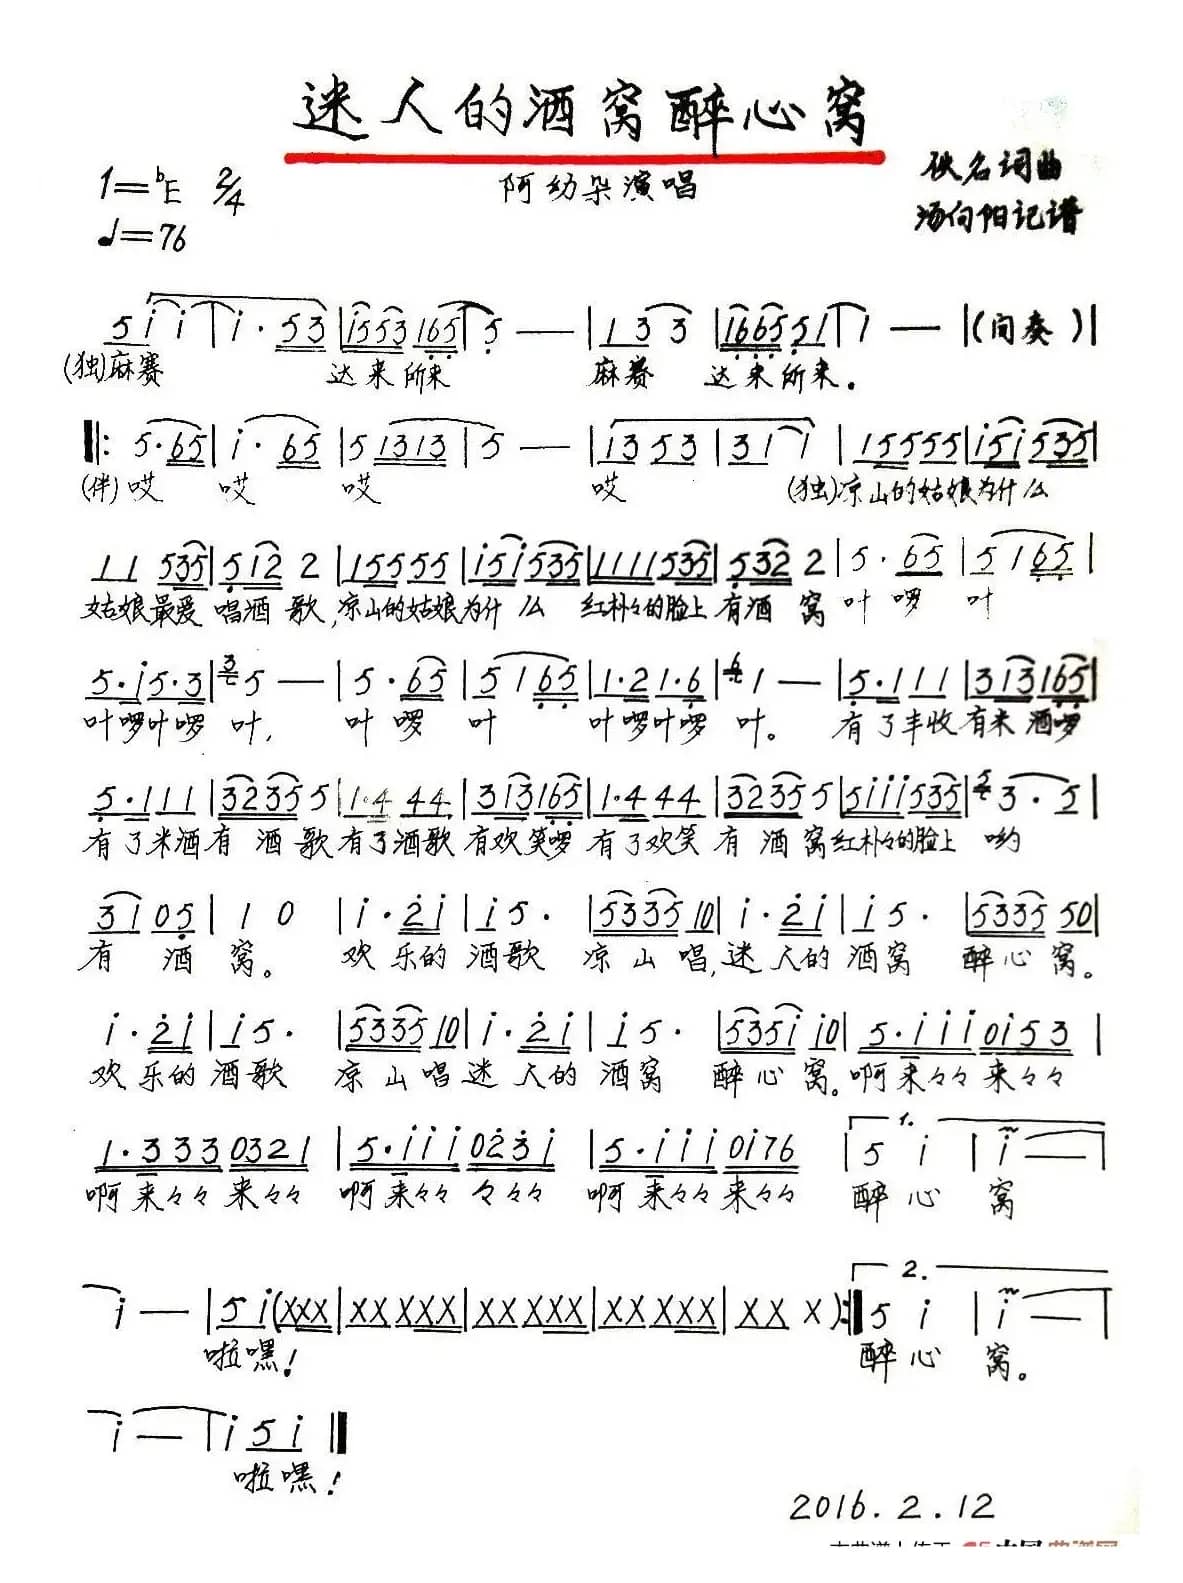 迷人的酒窝醉心窝
1=♭E 2/4
阿幼朵演唱
佚名词曲
♩=76
汤向阳记谱
5 i i | i · 5 3 | i 5 5 3 1 6 5 | 5 — | 1 3 3 | 1 6 6 5 5 1 | 1 — | (间奏) |
(独)麻赛 达来所来 麻赛 达来所来。
‖: 5 · 6 5 | i · 6 5 | 5 1 3 1 3 | 5 — | i 3 5 3 | 3 1 i | 1 5 5 5 5 | i 5 i 5 3 5 |
(伴)哎 哎 哎 哎 (独)凉山的姑娘为什么
1 1 5 3 5 | 5 1 2 2 | 1 5 5 5 5 | i 5 i 5 3 5 | 1 1 1 1 5 3 5 | 5 3 2 2 | 5 · 6 5 | 5 1 6 5 |
姑娘最爱 唱酒歌,凉山的姑娘为什么 红朴々的脸上有酒窝 叶啰 叶
5 · i 5 · 3 | 5 — | 5 · 6 5 | 5 1 6 5 | 1 · 2 1 · 6 | 1 — | 5 · 1 1 1 | 3 1 3 1 6 5 |
叶啰叶啰 叶, 叶啰 叶 叶啰叶啰 叶。 有了丰收有米酒啰
5 · 1 1 1 | 3 2 3 5 5 | 1 · 4 4 4 | 3 1 3 1 6 5 | 1 · 4 4 4 | 3 2 3 5 5 | 5 i i i 5 3 5 | 3 · 5 |
有了米酒有酒歌有了酒歌有欢笑啰有了欢笑有酒窝红朴々的脸上 哟
3 1 0 5 | 1 0 | i · 2 i | i 5 · | 5 3 3 5 1 0 | i · 2 i | i 5 · | 5 3 3 5 5 0 |
有酒窝。 欢乐的酒歌 凉山唱,迷人的酒窝 醉心窝。
i · 2 i | i 5 · | 5 3 3 5 1 0 | i · 2 i | i 5 · | 5 3 5 i i 0 | 5 · i i i 0 i 5 3 |
欢乐的酒歌 凉山唱迷人的酒窝 醉心窝。啊来々々 来々々
1 · 3 3 3 0 3 2 1 | 5 · i i i 0 2 3 i | 5 · i i i 0 i 7 6 | 1. 5 i | i — |
啊来々々 来々々 啊来々々 々々々 啊来々々来々々 醉心 窝
i — | 5 i (X X X | X X X X X | X X X X X | X X X X X | X X X ) :‖ 2. 5 i | i — |
啦嘿! 醉心 窝。
i — | i 5 i ‖
啦嘿!
2016.2.12